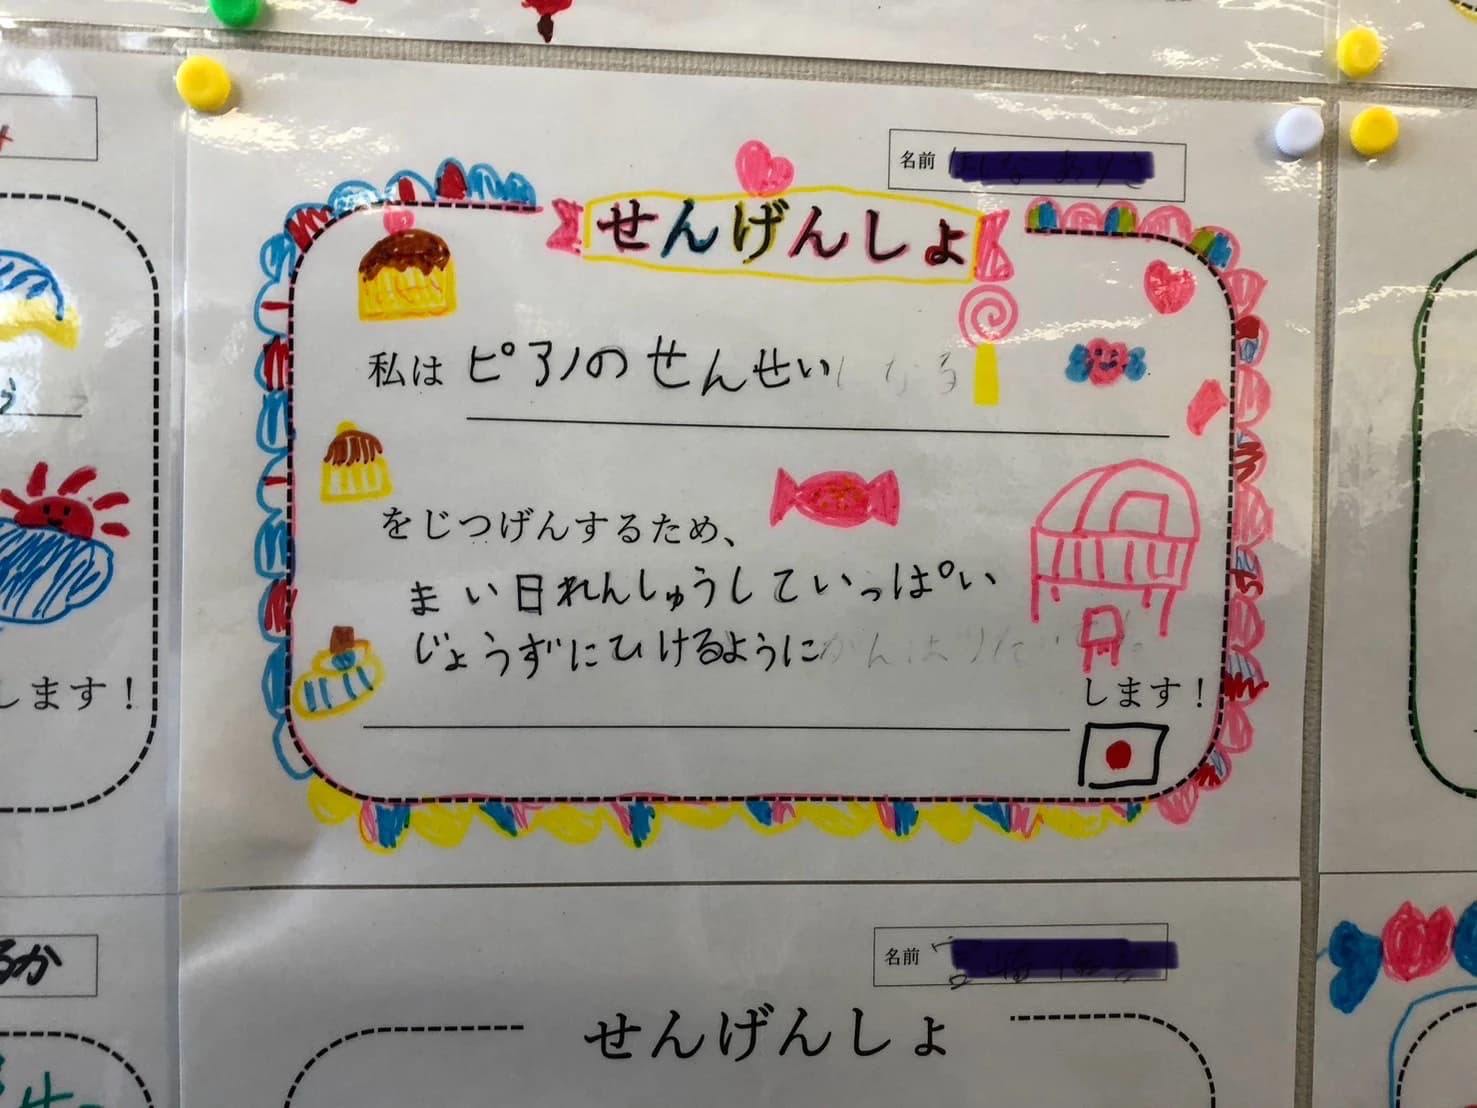 名前
せんげんしょ
私は ピアノのせんせいになる
をじつげんするため、
まい日れんしゅうしていっぱい
じょうずにひけるように
します！
します！
るか
名前
せんげんしょ